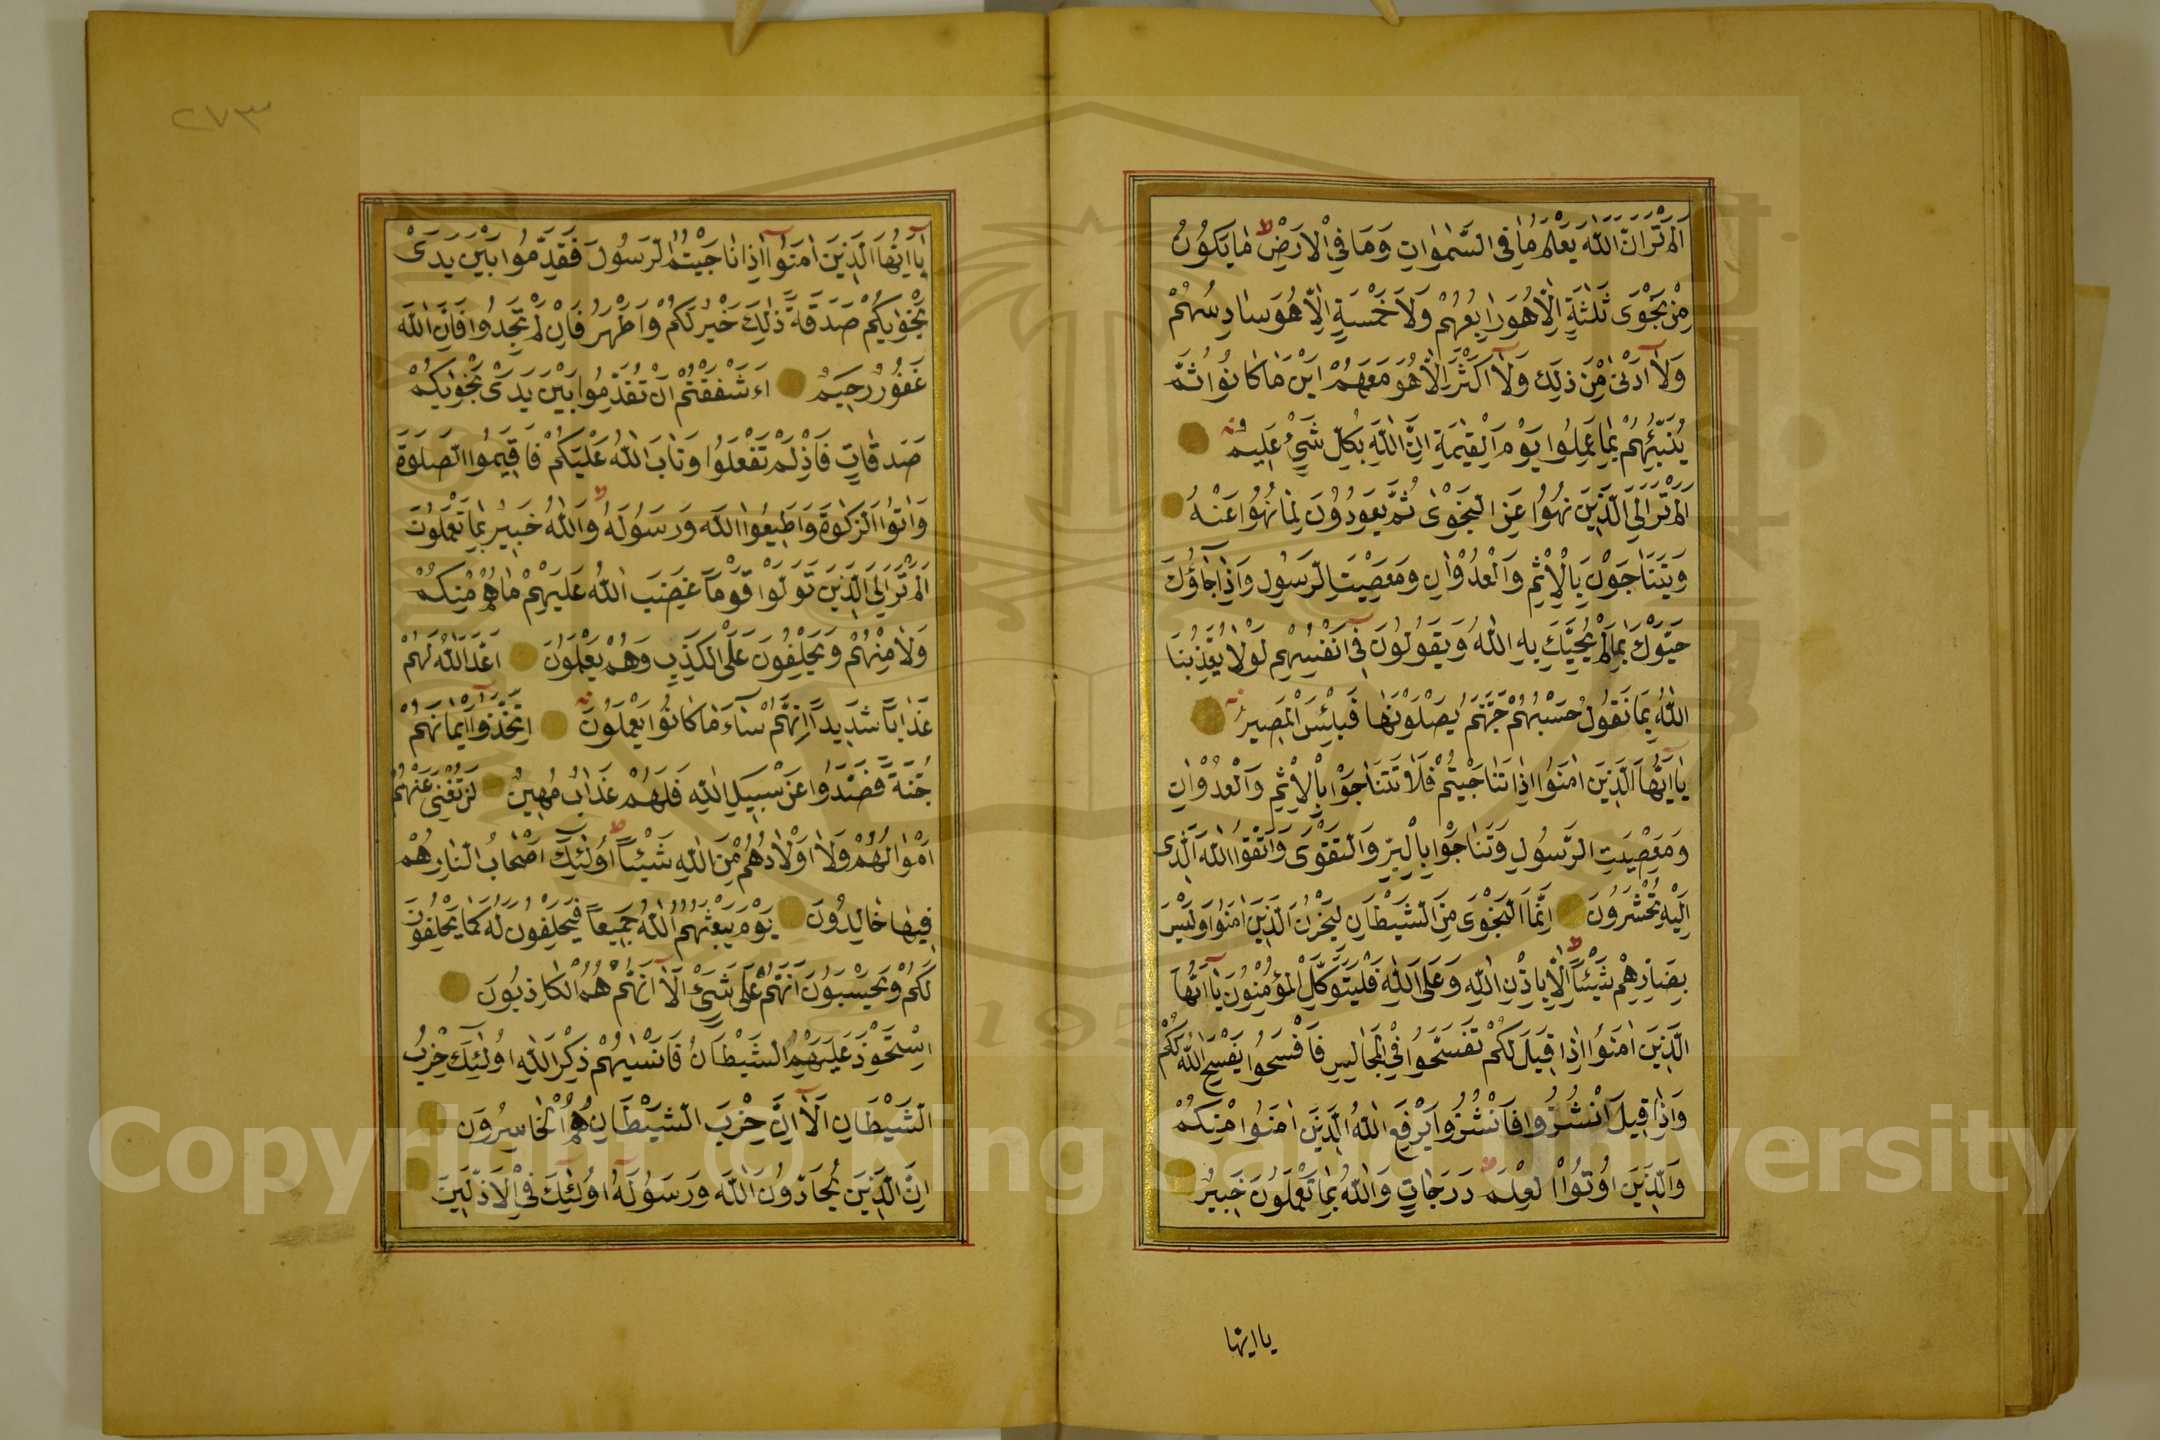 اَلَمْ تَرَ اَنَّ اللّٰهَ يَعْلَمُ مَا فِي السَّمٰوَاتِ وَمَا فِي الْاَرْضِ ط مَا يَكُونُ
مِنْ نَجْوٰى ثَلٰثَةٍ اِلَّا هُوَ رَابِعُهُمْ وَلَا خَمْسَةٍ اِلَّا هُوَ سَادِسُهُمْ
وَلَا اَدْنٰى مِنْ ذٰلِكَ وَلَا اَكْثَرَ اِلَّا هُوَ مَعَهُمْ اَيْنَ مَا كَانُوا ثُمَّ
يُنَبِّئُهُمْ بِمَا عَمِلُوا يَوْمَ الْقِيٰمَةِ اِنَّ اللّٰهَ بِكُلِّ شَيْءٍ عَلِيمٌ
اَلَمْ تَرَ اِلَى الَّذِينَ نُهُوا عَنِ النَّجْوٰى ثُمَّ يَعُودُونَ لِمَا نُهُوا عَنْهُ
وَيَتَنَاجَوْنَ بِالْاِثْمِ وَالْعُدْوَانِ وَمَعْصِيَتِ الرَّسُولِ وَاِذَا جَاؤُكَ
حَيَّوْكَ بِمَا لَمْ يُحَيِّكَ بِهِ اللّٰهُ وَيَقُولُونَ فِي اَنْفُسِهِمْ لَوْلَا يُعَذِّبُنَا
اللّٰهُ بِمَا نَقُولُ حَسْبُهُمْ جَهَنَّمُ يَصْلَوْنَهَا فَبِئْسَ الْمَصِيرُ
يَا اَيُّهَا الَّذِينَ اٰمَنُوا اِذَا تَنَاجَيْتُمْ فَلَا تَتَنَاجَوْا بِالْاِثْمِ وَالْعُدْوَانِ
وَمَعْصِيَتِ الرَّسُولِ وَتَنَاجَوْا بِالْبِرِّ وَالتَّقْوٰى وَاتَّقُوا اللّٰهَ الَّذِى
اِلَيْهِ تُحْشَرُونَ اِنَّمَا النَّجْوٰى مِنَ الشَّيْطَانِ لِيَحْزُنَ الَّذِينَ اٰمَنُوا وَلَيْسَ
بِضَارِّهِمْ شَيْئًا اِلَّا بِاِذْنِ اللّٰهِ ط وَعَلَى اللّٰهِ فَلْيَتَوَكَّلِ الْمُؤْمِنُونَ يَا اَيُّهَا
الَّذِينَ اٰمَنُوا اِذَا قِيلَ لَكُمْ تَفَسَّحُوا فِي الْمَجَالِسِ فَافْسَحُوا يَفْسَحِ اللّٰهُ لَكُمْ
وَاِذَا قِيلَ انْشُزُوا فَانْشُزُوا يَرْفَعِ اللّٰهُ الَّذِينَ اٰمَنُوا مِنْكُمْ
وَالَّذِينَ اُوتُوا الْعِلْمَ دَرَجَاتٍ وَاللّٰهُ بِمَا تَعْمَلُونَ خَبِيرٌ
يا ايها
٢٧٣
يَا اَيُّهَا الَّذِينَ اٰمَنُوا اِذَا نَاجَيْتُمُ الرَّسُولَ فَقَدِّمُوا بَيْنَ يَدَىْ
نَجْوٰيكُمْ صَدَقَةً ذٰلِكَ خَيْرٌ لَكُمْ وَاَطْهَرُ فَاِنْ لَمْ تَجِدُوا فَاِنَّ اللّٰهَ
غَفُورٌ رَحِيمٌ ءَاَشْفَقْتُمْ اَنْ تُقَدِّمُوا بَيْنَ يَدَىْ نَجْوٰيكُمْ
صَدَقَاتٍ فَاِذْ لَمْ تَفْعَلُوا وَتَابَ اللّٰهُ عَلَيْكُمْ فَاَقِيمُوا الصَّلٰوةَ
وَاٰتُوا الزَّكٰوةَ وَاَطِيعُوا اللّٰهَ وَرَسُولَهُ ط وَاللّٰهُ خَبِيرٌ بِمَا تَعْمَلُونَ
اَلَمْ تَرَ اِلَى الَّذِينَ تَوَلَّوْا قَوْمًا غَضِبَ اللّٰهُ عَلَيْهِمْ مَا هُمْ مِنْكُمْ
وَلَا مِنْهُمْ وَيَحْلِفُونَ عَلَى الْكَذِبِ وَهُمْ يَعْلَمُونَ اَعَدَّ اللّٰهُ لَهُمْ
عَذَابًا شَدِيدًا اِنَّهُمْ سَاءَ مَا كَانُوا يَعْمَلُونَ اِتَّخَذُوا اَيْمَانَهُمْ
جُنَّةً فَصَدُّوا عَنْ سَبِيلِ اللّٰهِ فَلَهُمْ عَذَابٌ مُهِينٌ لَنْ تُغْنِىَ عَنْهُمْ
اَمْوَالُهُمْ وَلَا اَوْلَادُهُمْ مِنَ اللّٰهِ شَيْئًا ط اُولٰئِكَ اَصْحَابُ النَّارِ هُمْ
فِيهَا خَالِدُونَ يَوْمَ يَبْعَثُهُمُ اللّٰهُ جَمِيعًا فَيَحْلِفُونَ لَهُ كَمَا يَحْلِفُونَ
لَكُمْ وَيَحْسَبُونَ اَنَّهُمْ عَلٰى شَىْءٍ اَلَا اِنَّهُمْ هُمُ الْكَاذِبُونَ
اِسْتَحْوَذَ عَلَيْهِمُ الشَّيْطَانُ فَاَنْسٰيهُمْ ذِكْرَ اللّٰهِ اُولٰئِكَ حِزْبُ
الشَّيْطَانِ اَلَا اِنَّ حِزْبَ الشَّيْطَانِ هُمُ الْخَاسِرُونَ
اِنَّ الَّذِينَ يُحَادُّونَ اللّٰهَ وَرَسُولَهُ اُولٰئِكَ فِي الْاَذَلِّينَ
Copyright © King Saud University